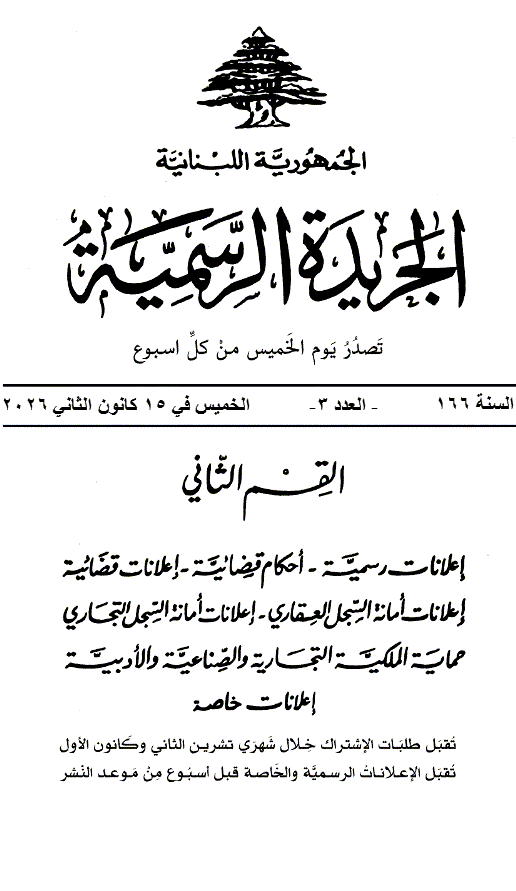 الجُمهُوريَّة اللبْنانيَّة
الجَريدَة الرسَّمِيَّة
تَصدُرُ يَوم الخَميس منْ كلِّ اسبوع
السنة ١٦٦ - العدد ٣- الخميس في ١٥ كانون الثاني ٢٠٢٦
القِسْم الثّاني
إعلانات رسميَّة - أحكام قضائيَّة - إعلانات قضائية
إعلانات أمانة السِّجل العقاري - إعلانات أمانة السِّجل التجاري
حماية الملكيَّة التجارية والصّناعيَّة والأدبيَّة
إعلانات خاصة
تُقبَل طلبَات الإشتراك خِلال شَهرَي تشرين الثاني وكَانون الأول
تُقبَل الإعلاناتُ الرسميَّة والخَاصة قبل أسبُوع مِنْ مَوعد النَشر